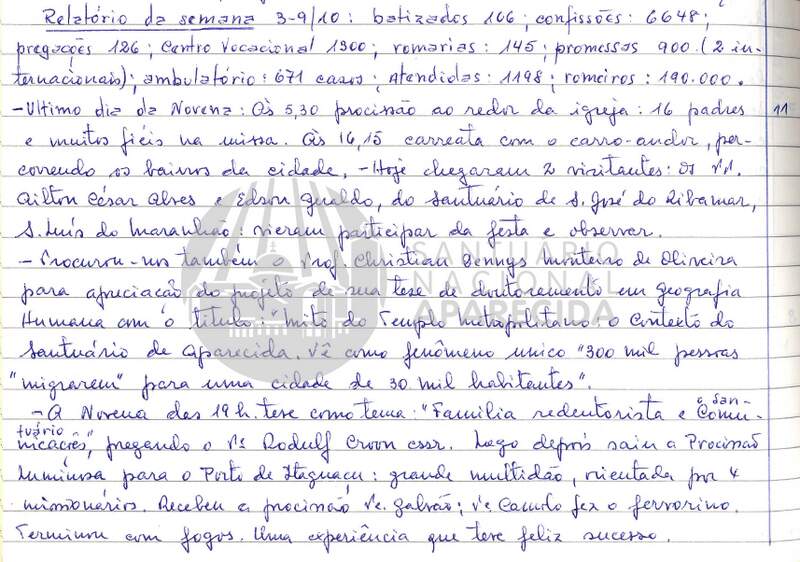 Relatório da semana 3-9/10: batizados 166; confissões: 6648;
pregações 126; Centro Vocacional 1300; romarias: 145; promessas 900. (2 in-
ternacionais); ambulatório: 671 casos; Atendidas: 1198; romeiros: 190.000.
- Ultimo dia da Novena: Às 5,30 procissão ao redor da igreja: 16 padres 11
e muitos fiéis na missa. Às 16,15 carreata com o carro-andor, per-
correndo os bairros da cidade, - Hoje chegaram 2 visitantes: os
Ailton César Alves e Edson Geraldo, do Santuário de S. José do Ribamar,
S. Luís do Maranhão: vieram participar da festa e observar.
- Procurou-nos também o Prof. Christian Dennys Monteiro de Oliveira
para apreciação do projeto de sua tese de doutoramento em geografia
Humana com o título: "Mito do Templo metropolitano: o Contexto do
Santuário de Aparecida. Vê como fenômeno unico "300 mil pessoas
"migrarem" para uma cidade de 30 mil habitantes".
- A Novena das 19 h. teve como tema: "Familia redentorista e Comu- o San-
tuário
nicações", pregando o Pe Rodulf Croon cssr. Logo depois saiu a Procissão
Luminosa para o Porto de Itaguaçu: grande multidão, orientada por 4
missionários. Recebeu a procissão Pe. Galvão; Pe Camilo fez o fervorino.
Terminou com fogos. Uma experiência que teve feliz sucesso.
SANTUÁRIO
NACIONAL
APARECIDA